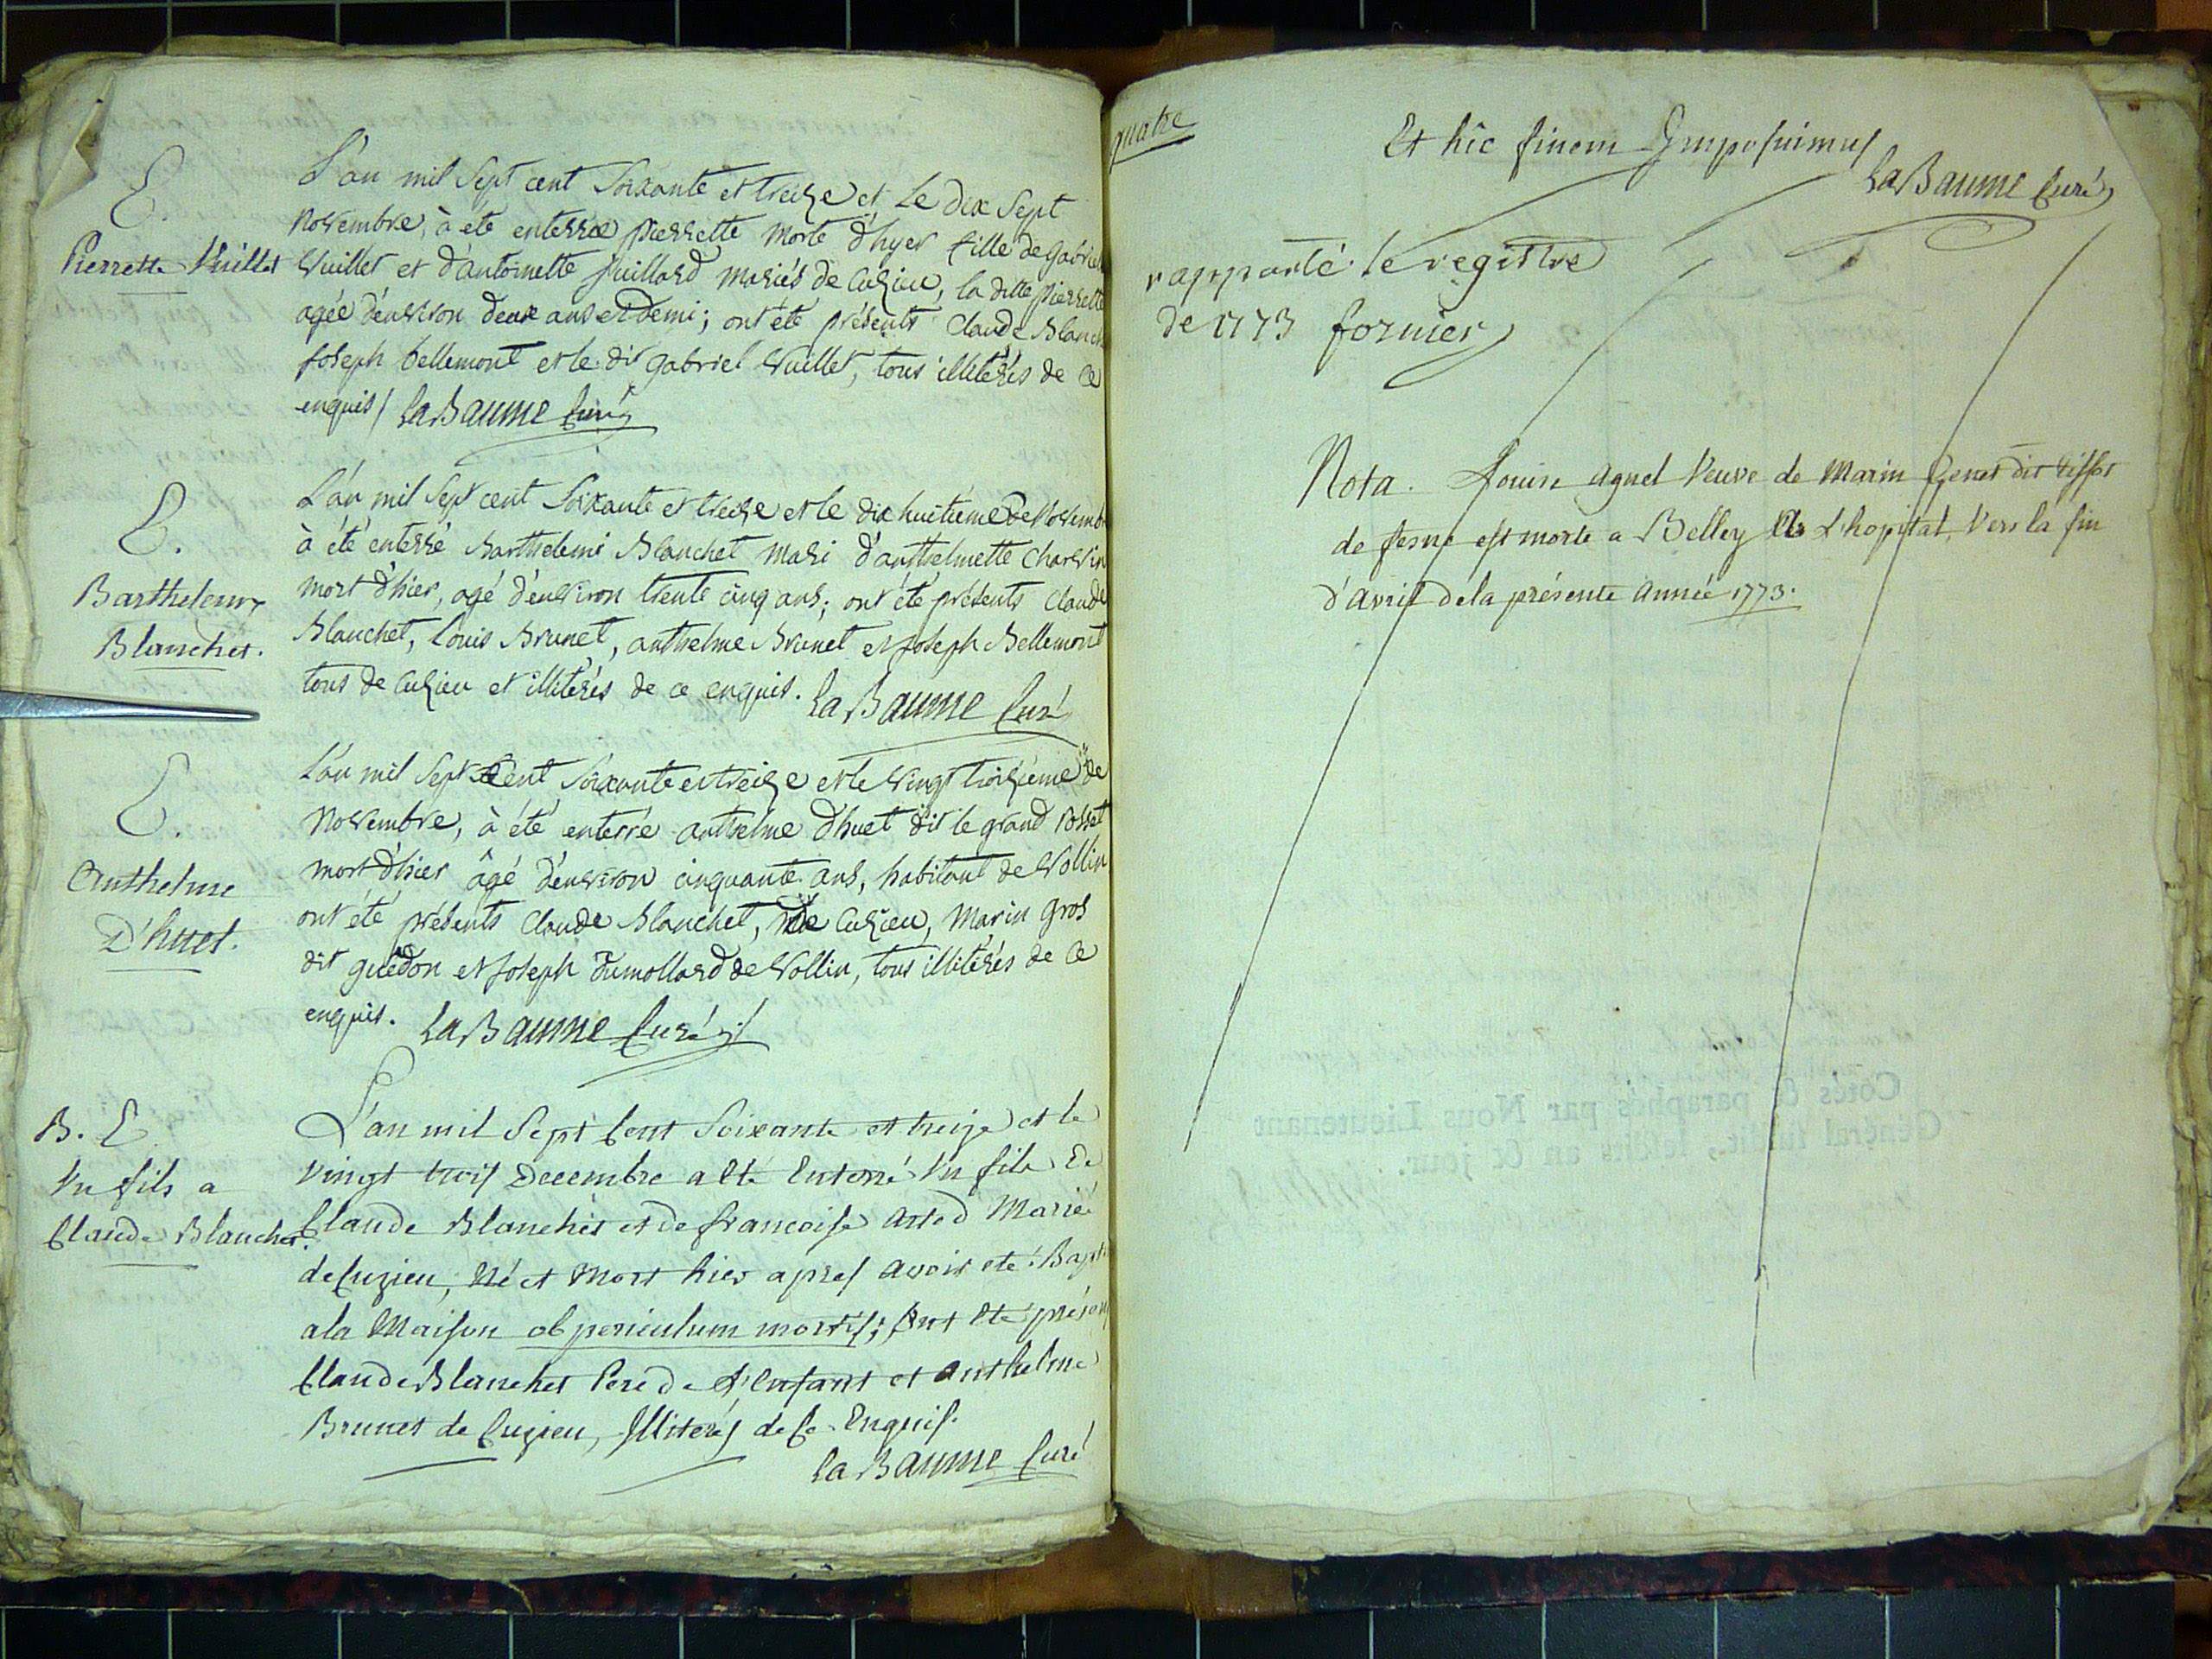 E.
Pierrette Vuillet
L'an mil Sept cent Soixante et treize et Le dix Sept
Novembre, à été enterrée pierrette Morte d'hyer fille de gabriel
Vuillet et d'antoinette juillard mariés de Cuzieu, la ditte pierrette
agée d'environ deux ans et demi; ont été présents Claude Blanch
joseph bellemont et le dit gabriel Vuillet, tous illitérés de ce
enquis / La Baume Curé
E.
Barthelemy
Blanchet.
L'an mil Sept cent Soixante et treize et le dix huitieme de Novemb
à été enterré Barthelemi Blanchet mari d'anthelmette Charvin
mort d'hier, agé d'environ trente cinq ans; ont été présents Claude
Blanchet, Louis Brunet, anthelme Brunet et joseph Bellemont
tous de Cuzieu et illitérés de ce enquis. La Baume Curé
E.
Anthelme
D'huet.
L'an mil Sept Cent Soixante et treize et le Vingt troizieme de
Novembre, à été enterré anthelme d'huet dit le grand Rosset
mort d'hier âgé d'environ cinquante ans, habitant de Vollin
ont été présents Claude Blanchet, de Cuzieu, Marin gros
dit guédon et joseph Dumollard de Vollin, tous illitérés de ce
enquis. La Baume Curé
B. E.
Un fils a
Claude Blanchet.
L'an mil Sept Cent Soixante et treize et le
Vingt trois Decembre a eté Enterré Un fils De
Claude Blanchet et de francoise Arted Marié
de Cuzieu, Né et Mort hier apres avoir eté Bapt
a la Maison ob periculum mortis; Ont eté présen
Claude Blanchet Pere de L'enfant et Anthelme
Brunet de Cuzieu, Illiterés de Ce Enquis.
La Baume Curé
quatre
Et hîc finem Imposuimus
La Baume Curé
rapporté le registre
de 1773 fornier
Nota. Louise Agnel Veuve de Marin Genet dit tissot
de est morte a Belley L'hopital, Vers la fin
d'Avril de la présente Année 1773.
Cotés & paraphés par Nous Lieutenant
Général susdit, lesdits an & jour.